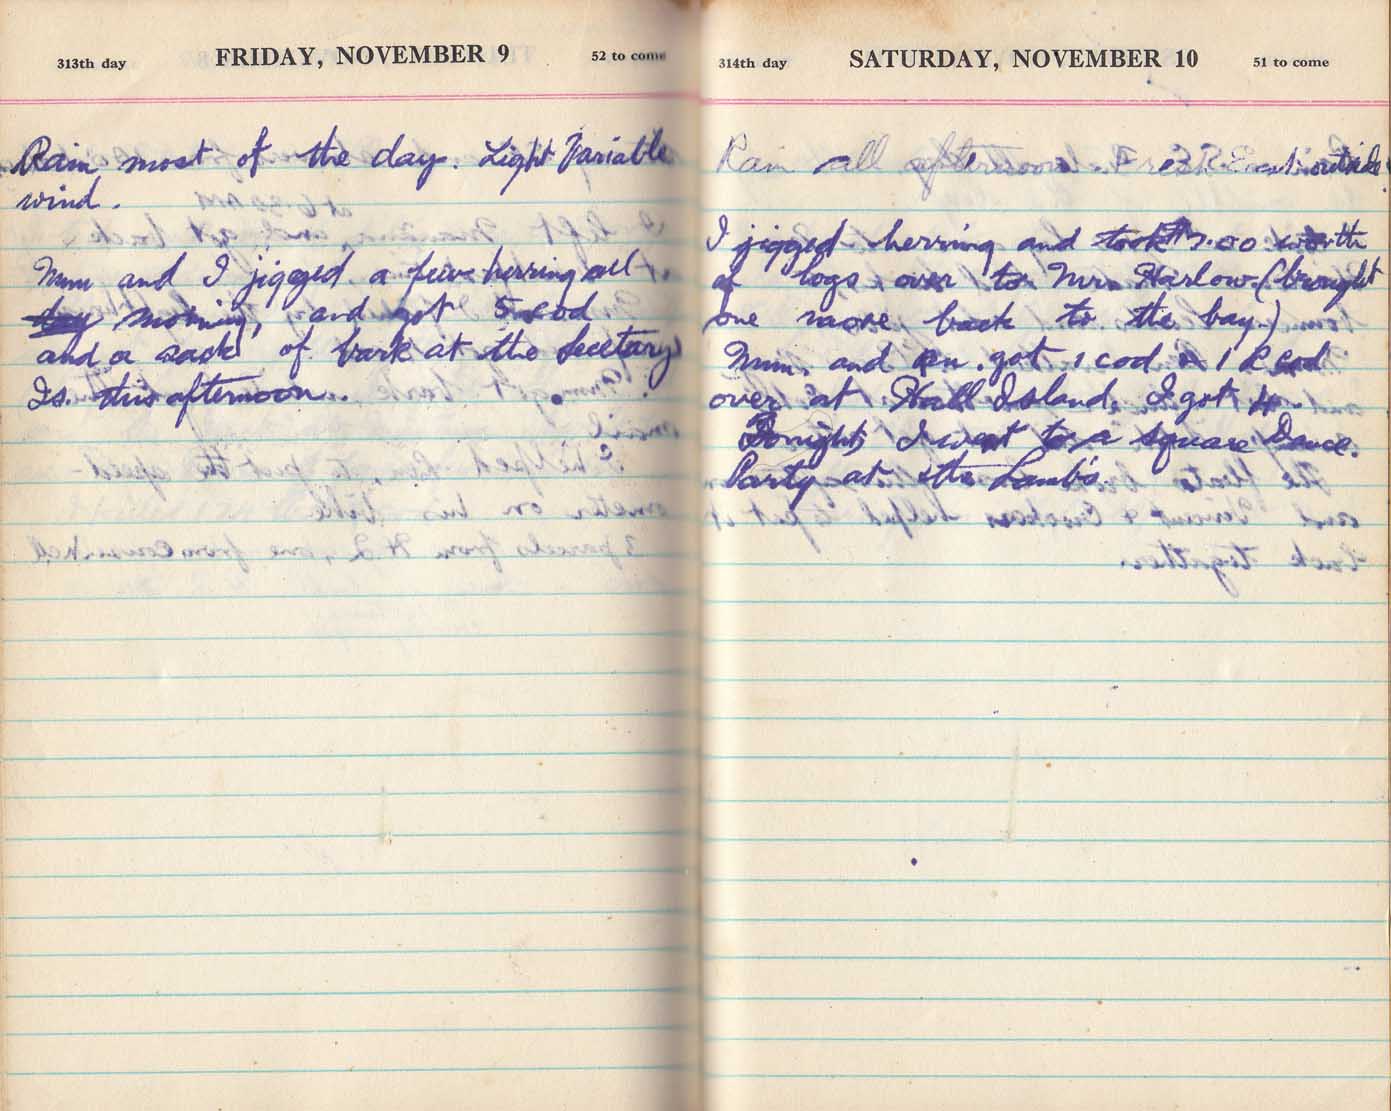 313th day FRIDAY, NOVEMBER 9 52 to come
Rain most of the day. Light Variable
wind.
Mum and I jigged a few herring all
day morning, and got 5 cod
and a sack of bark at the Secetary
Is. this afternoon.
314th day SATURDAY, NOVEMBER 10 51 to come
Rain all afternoon. Fresh E. outside.
I jigged herring and took $7.00 worth
of logs over to Mrs Harlow. (brought
one more back to the bay.)
Mum. and got 1 cod & 1 R cod
over at Hall Island. I got 4
Tonight I went to a square Dance.
Party at the Lamb's.